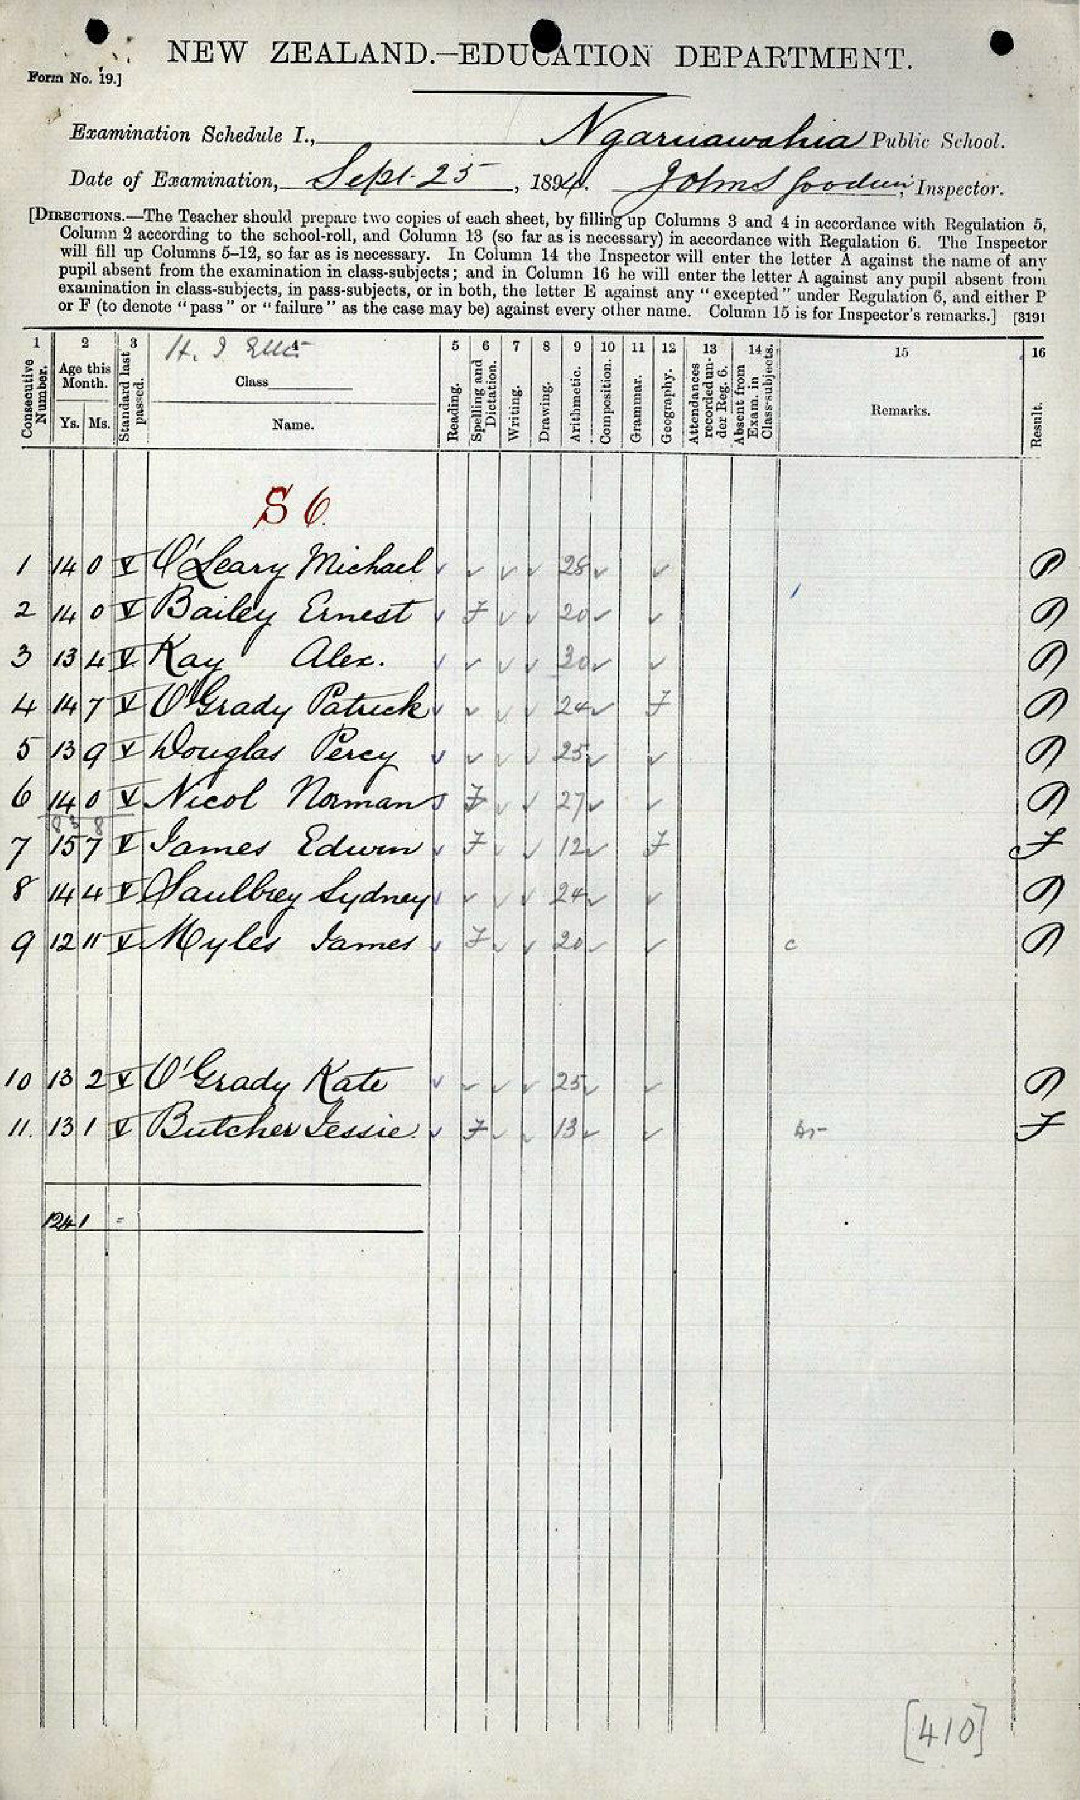 NEW ZEALAND.—EDUCATION DEPARTMENT.
Form No. 19.]
Examination Schedule I., Ngaruawahia Public School.
Date of Examination, Sept. 25, 1894. John S Goodwin, Inspector.
[DIRECTIONS.—The Teacher should prepare two copies of each sheet, by filling up Columns 3 and 4 in accordance with Regulation 5,
Column 2 according to the school-roll, and Column 13 (so far as is necessary) in accordance with Regulation 6. The Inspector
will fill up Columns 5–12, so far as is necessary. In Column 14 the Inspector will enter the letter A against the name of any
pupil absent from the examination in class-subjects; and in Column 16 he will enter the letter A against any pupil absent from
examination in class-subjects, in pass-subjects, or in both, the letter E against any "excepted" under Regulation 6, and either P
or F (to denote "pass" or "failure" as the case may be) against every other name. Column 15 is for Inspector's remarks.] [8191
1 2 3 4 5 6 7 8 9 10 11 12 13 14 15 16
Consecutive Number. Age this Month. Ys. Ms. Standard last passed. Class Name. Reading. Spelling and Dictation. Writing. Drawing. Arithmetic. Composition. Grammar. Geography. Attendances recorded under Reg. 6. Absent from Exam. in Class-subjects. Remarks. Result.
S 6
1 14 0 V O'Leary Michael ✓ ✓ ✓ ✓ 28 ✓ ✓ P
2 14 0 V Bailey Ernest ✓ F ✓ ✓ 20 ✓ ✓ P
3 13 4 V Kay Alex. ✓ ✓ ✓ ✓ 30 ✓ ✓ P
4 14 7 V O'Grady Patrick ✓ ✓ ✓ ✓ 24 ✓ F P
5 13 9 V Douglas Percy ✓ ✓ ✓ ✓ 25 ✓ ✓ P
6 14 0 V Nicol Norman ✓ F ✓ ✓ 27 ✓ ✓ P
83 8
7 15 7 V James Edwin ✓ F ✓ ✓ 12 ✓ F F
8 14 4 V Saulbrey Sydney ✓ ✓ ✓ ✓ 24 ✓ ✓ P
9 12 11 V Myles James ✓ F ✓ ✓ 20 ✓ ✓ c P
10 13 2 V O'Grady Kate ✓ ✓ ✓ ✓ 25 ✓ ✓ P
11. 13 1 V Butcher Jessie. ✓ F ✓ ✓ 13 ✓ ✓ F
[410]